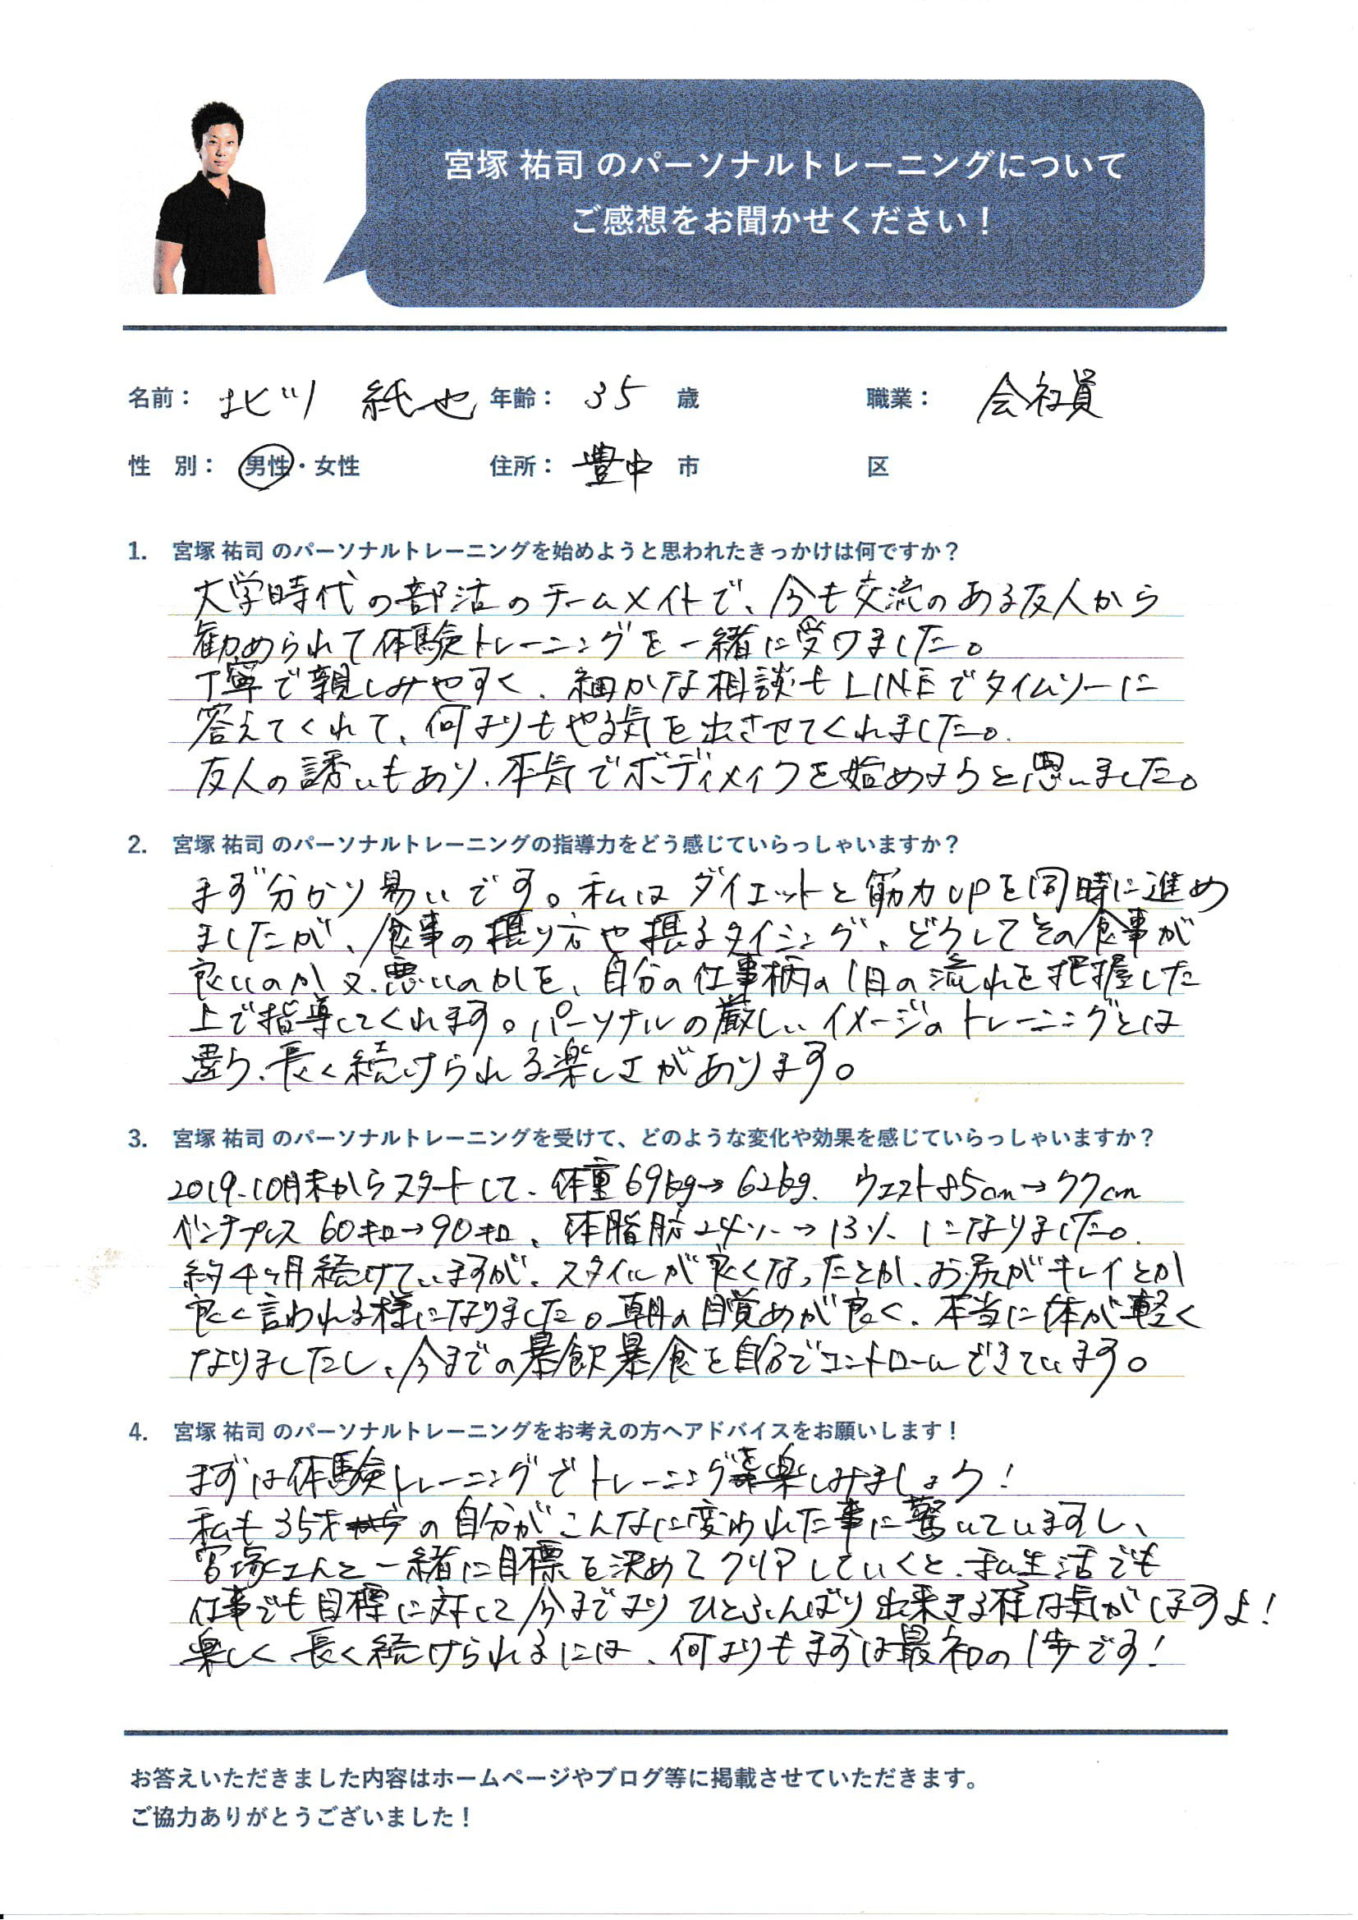 宮塚 祐司 のパーソナルトレーニングについて
ご感想をお聞かせください！
名前： 北川 純也 年齢： 35 歳 職業： 会社員
性 別： 男性・女性 住所： 豊中 市 区
1. 宮塚 祐司 のパーソナルトレーニングを始めようと思われたきっかけは何ですか？
大学時代の部活のチームメイトで、今も交流のある友人から
勧められて体験トレーニングを一緒に受けました。
丁寧で親しみやすく、細かな相談もLINEでタイムリーに
答えてくれて、何よりもやる気を出させてくれました。
友人の誘いもあり、本気でボディメイクを始めようと思いました。
2. 宮塚 祐司 のパーソナルトレーニングの指導力をどう感じていらっしゃいますか？
まず分かり易いです。私はダイエットと筋力UPを同時に進め
ましたが、食事の摂り方や摂るタイミング、どうしてその食事が
良いのか又、悪いのかを、自分の仕事柄の1日の流れを把握した
上で指導してくれます。パーソナルの厳しいイメージのトレーニングとは
違う、長く続けられる楽しさがあります。
3. 宮塚 祐司 のパーソナルトレーニングを受けて、どのような変化や効果を感じていらっしゃいますか？
2019.10月末からスタートして、体重69kg→62kg、ウエスト85cm→77cm
ベンチプレス 60キロ→90キロ、体脂肪24%→13%になりました。
約4ヶ月続けていますが、スタイルが良くなったとか、お尻がキレイとか
良く言われる様になりました。朝の目覚めが良く、本当に体が軽く
なりましたし、今までの暴飲暴食を自分でコントロールできています。
4. 宮塚 祐司 のパーソナルトレーニングをお考えの方へアドバイスをお願いします！
まずは体験トレーニングでトレーニング楽しみましょう！
私も35才の自分がこんなに変われた事に驚いていますし、
宮塚さんと一緒に目標を決めてクリアしていくと、私生活でも
仕事でも目標に対して今までよりひとふんばり出来る様な気がしますよ！
楽しく長く続けられるには、何よりもまずは最初の1歩です！
お答えいただきました内容はホームページやブログ等に掲載させていただきます。
ご協力ありがとうございました！